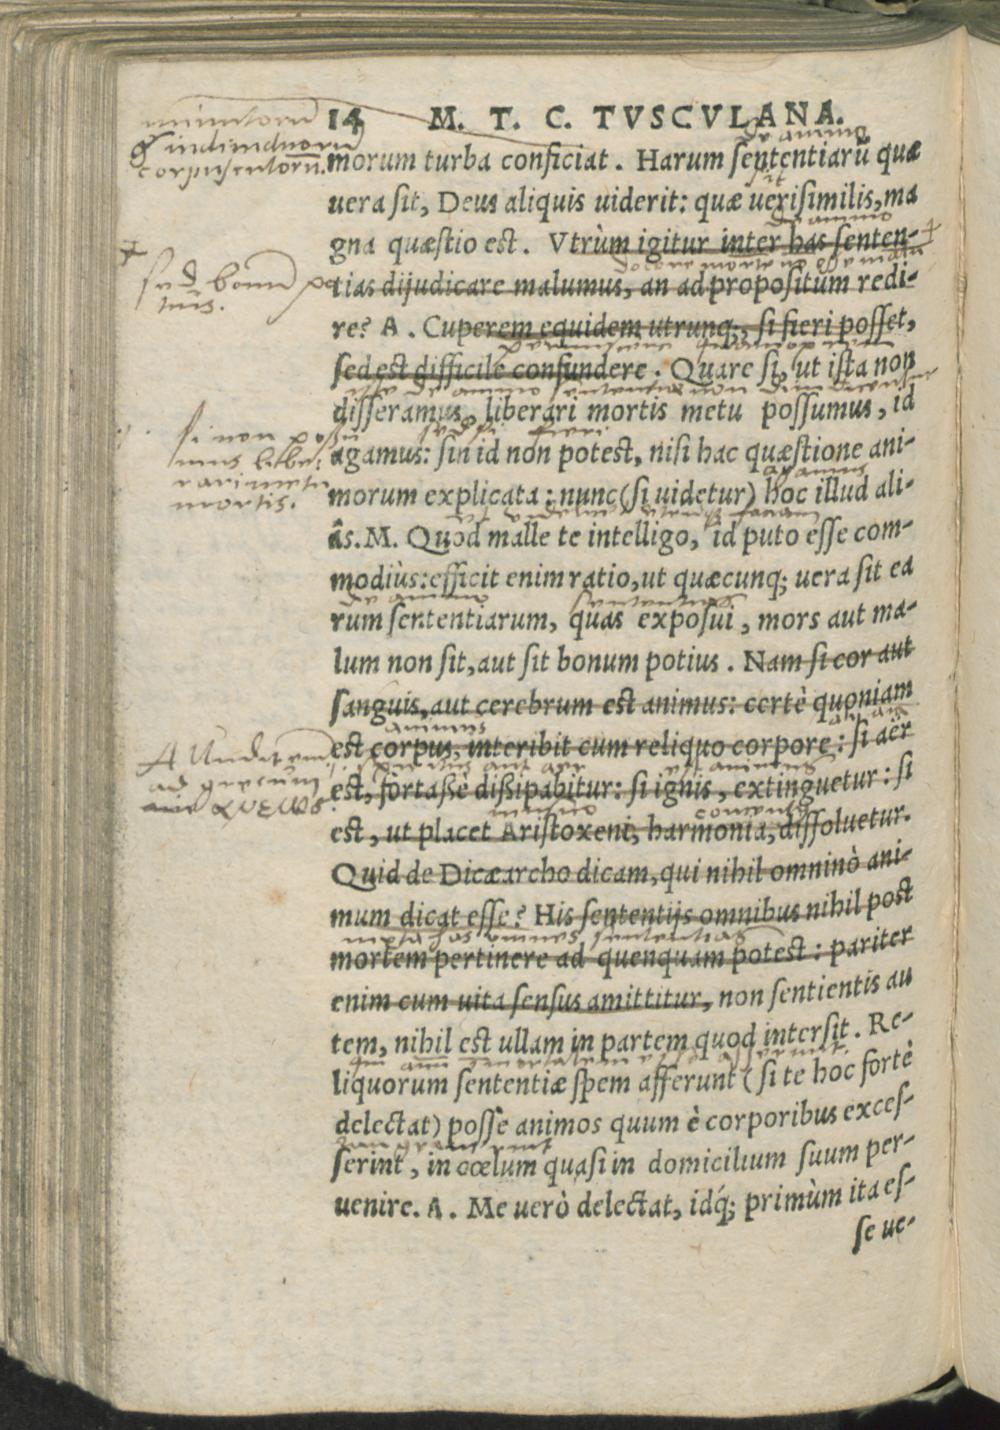 minutorū
& indiuiduorū
corpusculorū.
14 M. T. C. TVSCVLANA.
de animo
morum turba conficiat. Harum sententiarū quæ
sit
uera sit, Deus aliquis uiderit: quæ uerisimilis, ma
de animo
gna quæstio est. Vtrùm igitur inter has senten-
sed bonū po
tius.
tias dijudicare malumus, an ad propositum redi-
re? A. Cuperem equidem utrunq;, si fieri posset,
sed est difficile confundere. Quare si, ut ista non
disseramus, liberari mortis metu possumus, id
si non possu
mus libe:
rari metu
mortis.
agamus: sin id non potest, nisi hac quæstione ani-
agamus
morum explicata: nunc (si uidetur) hoc illud ali-
âs. M. Quod malle te intelligo, id puto esse com-
modiùs: efficit enim ratio, ut quæcunq; uera sit ea
de animo sententias
rum sententiarum, quas exposui, mors aut ma-
lum non sit, aut sit bonum potius. Nam si cor aut
sanguis, aut cerebrum est animus: certè quoniam
animus
est corpus, interibit cum reliquo corpore: si aër
est, fortassè dissipabitur: si ignis, extinguetur: si
est, ut placet Aristoxeni, harmonia, dissoluetur.
Quid de Dicæarcho dicam, qui nihil omninò ani-
mum dicat esse? His sententijs omnibus nihil post
omnes sententias
mortem pertinere ad quenquam potest: pariter
enim cum uita sensus amittitur, non sentientis au
tem, nihil est ullam in partem quod intersit. Re-
liquorum sententiæ spem afferunt (si te hoc fortè
delectat) posse animos quum è corporibus exces-
serint, in cœlum quasi in domicilium suum per-
uenire. A. Me uerò delectat, idq́; primùm ita es-
se ue-